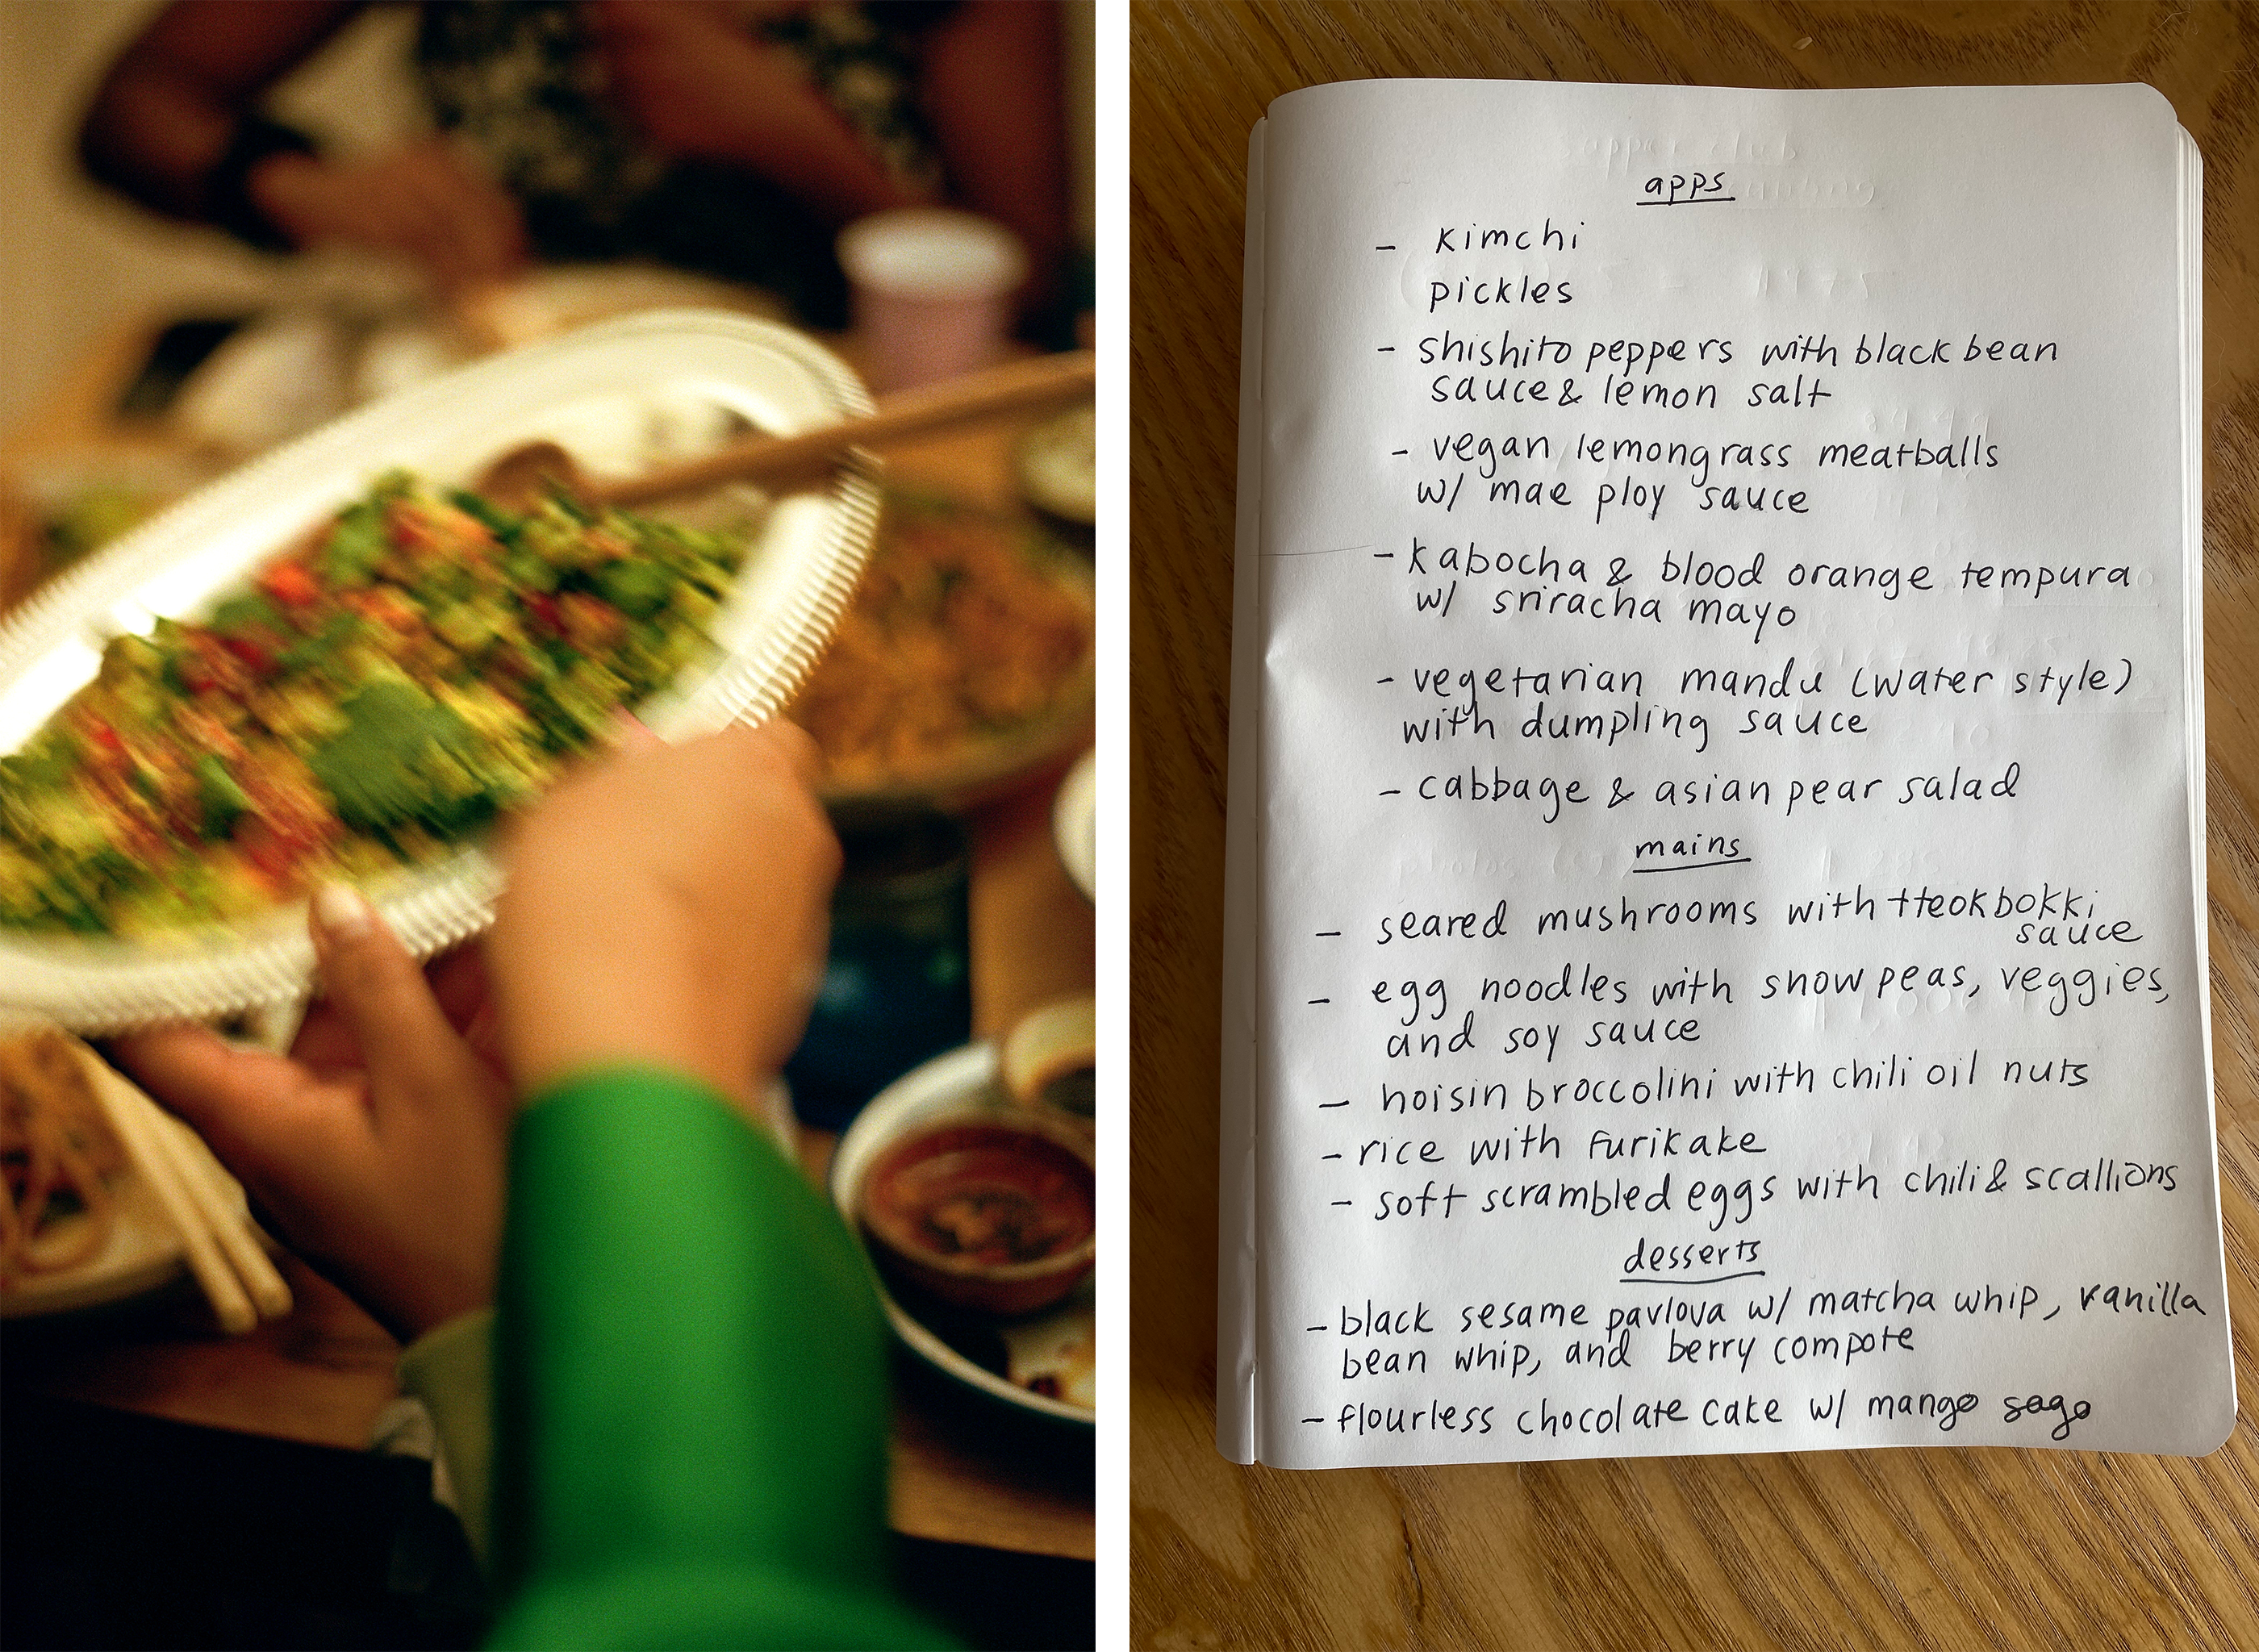 apps
- kimchi
pickles
- shishito peppers with black bean
sauce & lemon salt
- vegan lemongrass meatballs
w/ mae ploy sauce
- kabocha & blood orange tempura
w/ sriracha mayo
- vegetarian mandu (water style)
with dumpling sauce
- cabbage & asian pear salad
mains
- seared mushrooms with tteokbokki
sauce
- egg noodles with snow peas, veggies,
and soy sauce
- hoisin broccolini with chili oil nuts
- rice with furikake
- soft scrambled eggs with chili & scallions
desserts
- black sesame pavlova w/ matcha whip, vanilla
bean whip, and berry compote
- flourless chocolate cake w/ mango sago